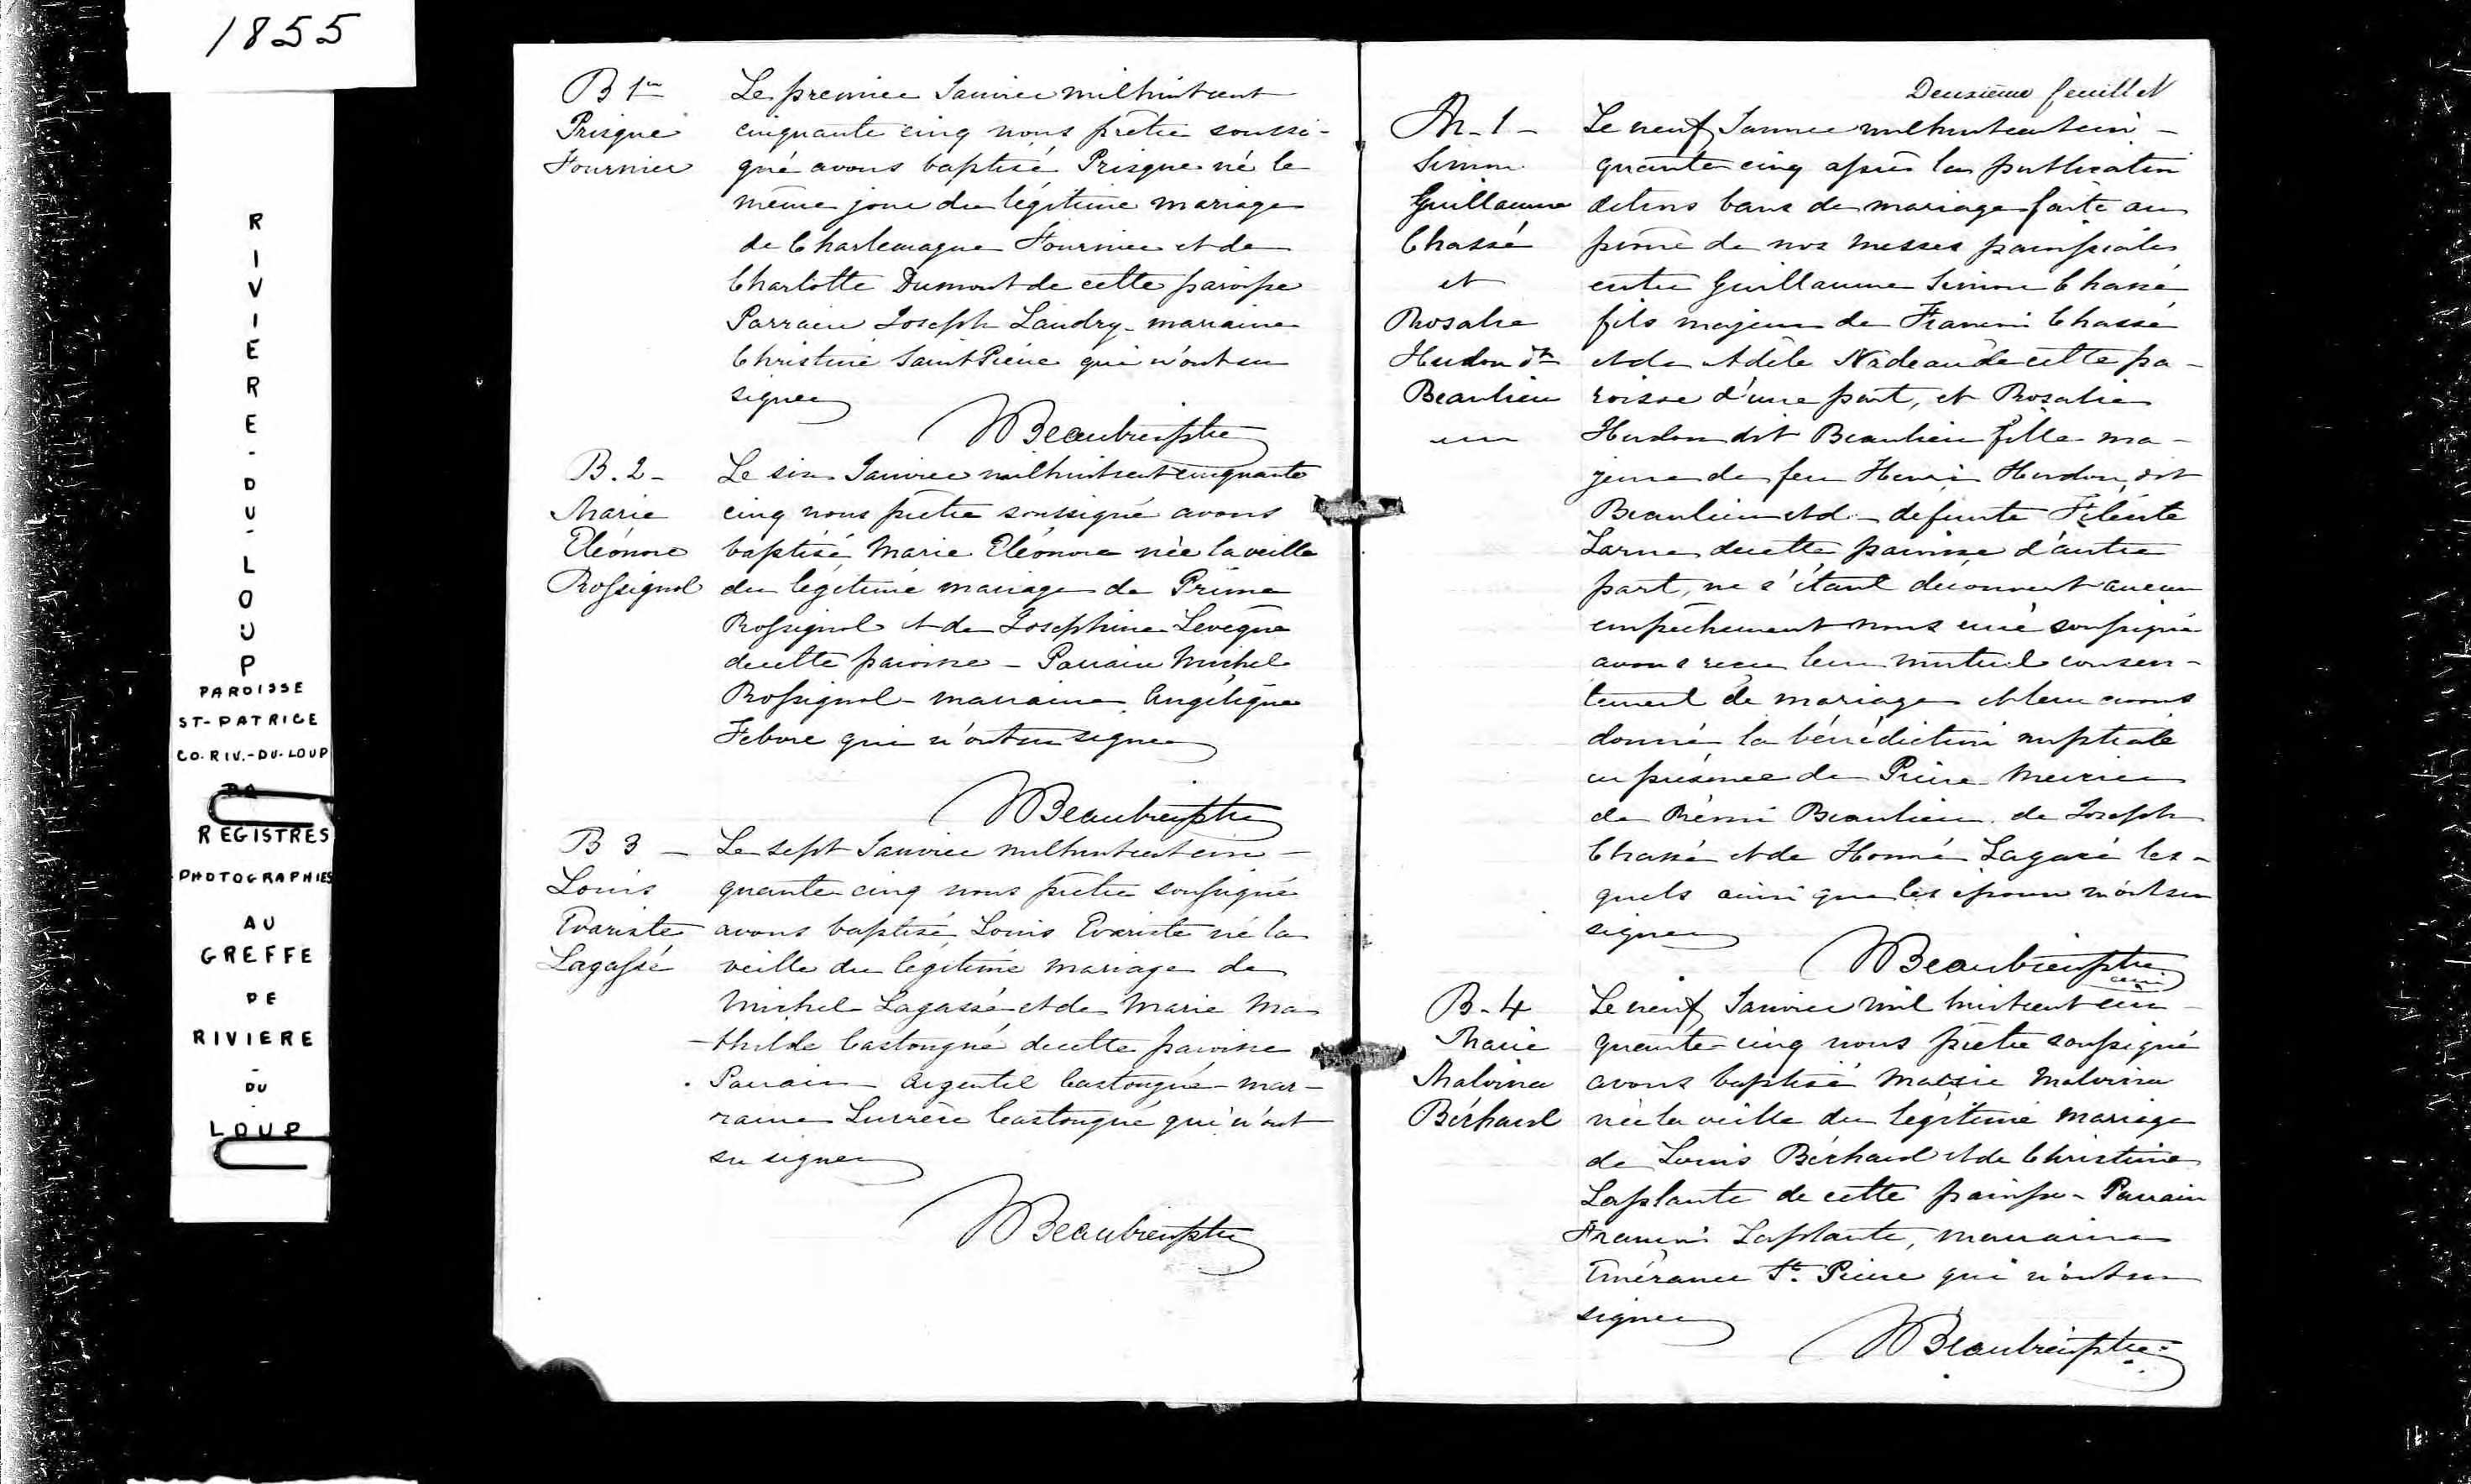 1855
RIVIERE-DU-LOUP
PAROISSE
ST-PATRICE
CO. RIV.-DU-LOUP
REGISTRES
PHOTOGRAPHIES
AU
GREFFE
DE
RIVIERE
-
DU
-
LOUP
B 1er
Prisque
Fournier
Le premier Janvier mil huit cent
cinquante cinq nous prêtre soussi-
gné avons baptisé Prisque né le
même jour du légitime mariage
de Charlemagne Fournier et de
Charlotte Dumont de cette paroisse
Parrain Joseph Landry - marraine
Christine Saint Pierre qui n'ont su
signer
Beaubien ptre
B. 2 -
Marie
Eléonore
Rossignol
Le six Janvier mil huit cent cinquante
cinq nous prêtre soussigné avons
baptisé Marie Eléonore née la veille
du légitime mariage de Prime
Rossignol et de Josephine Levêque
de cette paroisse - Parrain Michel
Rossignol - marraine Angélique
Febvre qui n'ont su signer
Beaubien ptre
B 3 -
Louis
Evariste
Lagassé
Le sept Janvier mil huit cent cin-
quante cinq nous prêtre soussigné
avons baptisé Louis Evariste né la
veille du légitime mariage de
Michel Lagassé et de Marie Ma
-thilde Castongué de cette paroisse
Parrain - Argentil Castongué - mar-
raine Castongué qui n'ont
su signer
Beaubien ptre
Deuxième feuillet
M - 1 -
Simon
Guillaume
Chassé
et
Rosalie
Hudon dt
Beaulieu
Le neuf Janvier mil huit cent cin-
quante cinq après la publication
de trois bans de mariage faite au
prône de nos messes paroissiales
entre Guillaume Simon Chassé
fils majeur de François Chassé
et de Adèle Nadeau de cette pa-
roisse d'une part, et Rosalie
Hudon dit Beaulieu fille ma-
jeure de feu Henri Hudon dit
Beaulieu et de defunte Félicité
Larue de cette paroisse d'autre
part, ne s'étant découvert aucun
empêchement nous curé soussigné
avons reçu leur mutuel consen-
tement de mariage et leur avons
donné la bénédiction nuptiale
en présence de Pierre
de Rémi Beaulieu de Joseph
Chassé et de Honoré Lagacé les-
quels ainsi que les époux n'ont su
signer
Beaubien ptre
curé
B - 4
Marie
Malvina
Bérhard
Le neuf Janvier mil huit cent cin-
quante-cinq nous prêtre soussigné
avons baptisé Marie Malvina
née la veille du légitime mariage
de Louis Bérhard et de Christine
Laplante de cette paroisse - Parrain
François Laplante, marraine
Emérance St. Pierre qui n'ont su
signer
Beaubien ptre